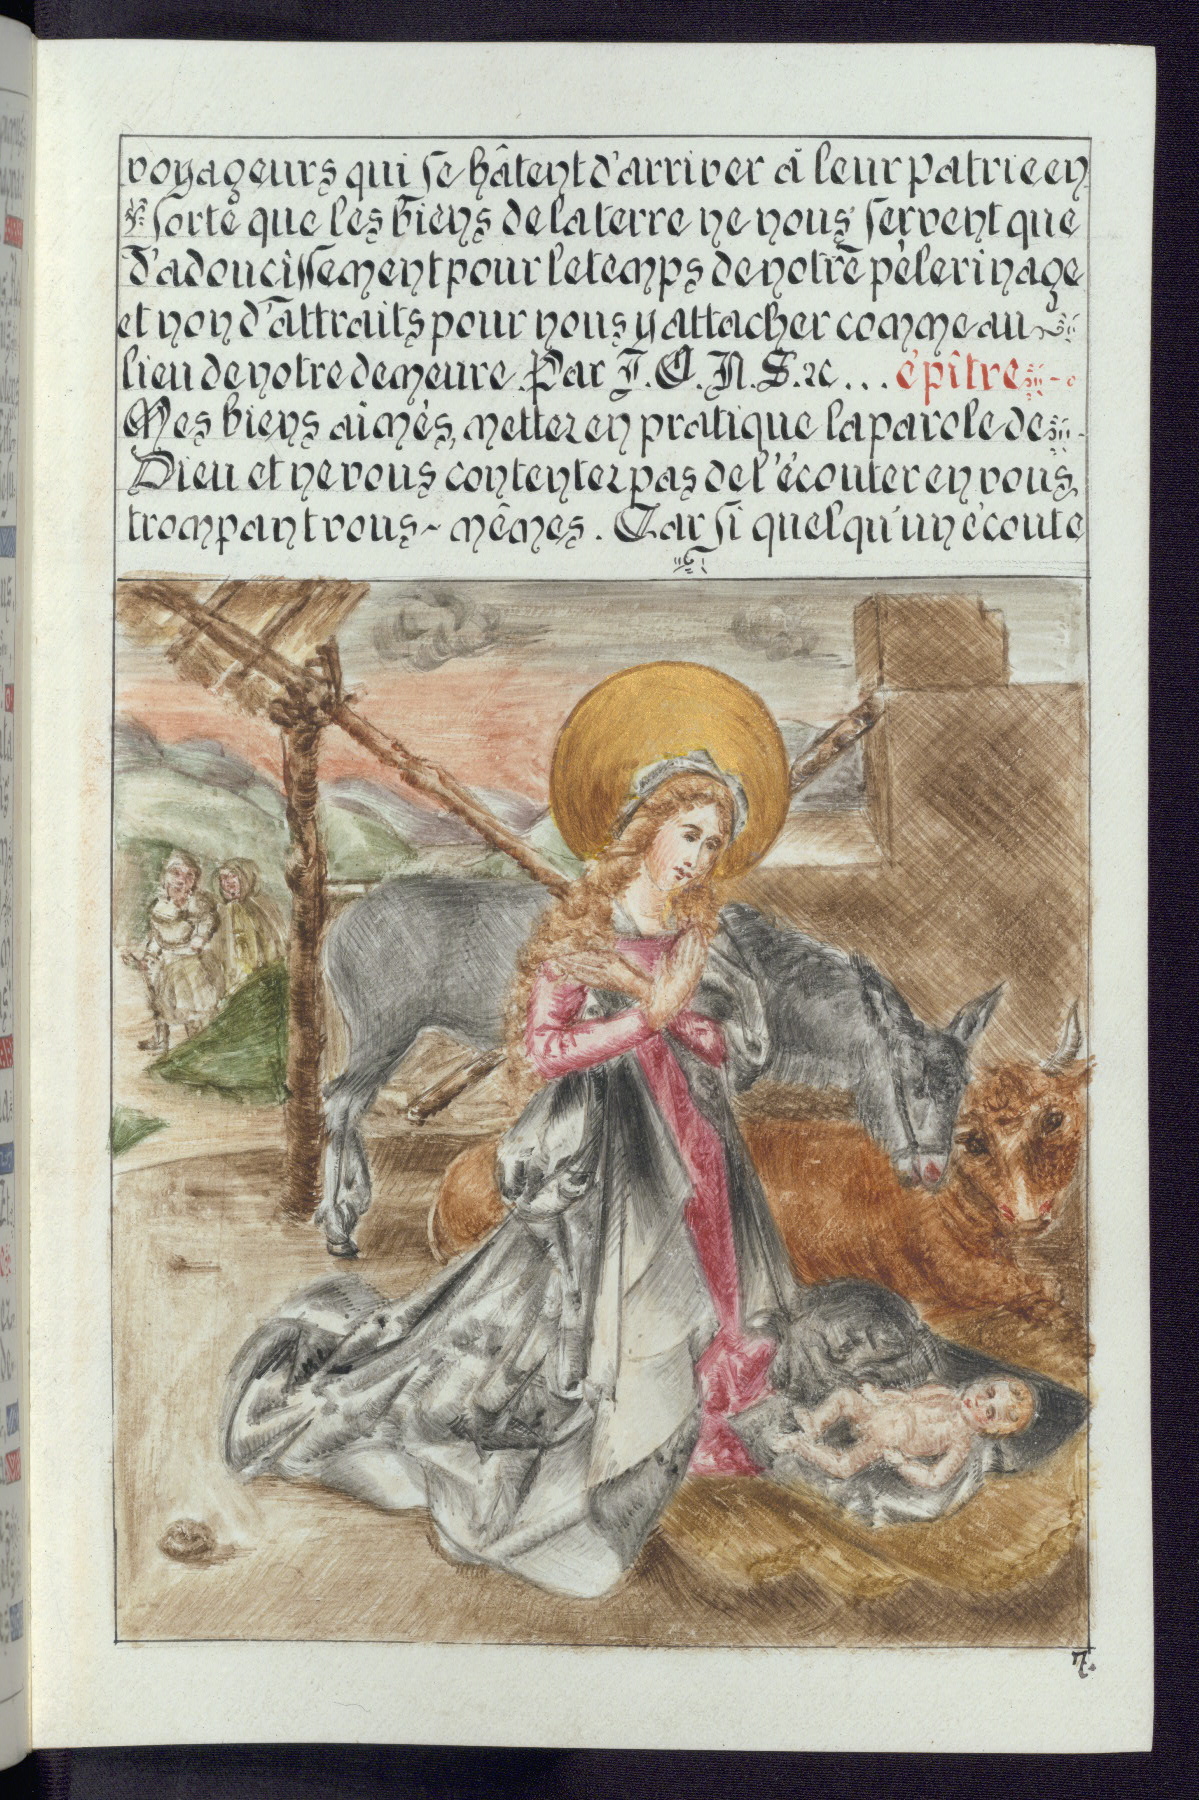 voyageurs qui se hâtent d'arriver à leur patrie en
sorte que les biens de la terre ne nous servent que
d'adoucissement pour le temps de notre pèlerinage
et non d'attraits pour nous y attacher comme au
lieu de notre demeure. Par J. C. N. S. &c... épître
Mes biens aimés, mettez en pratique la parole de
Dieu et ne vous contentez pas de l'écouter en vous
trompant vous-mêmes. Car si quelqu'un écoute
7.